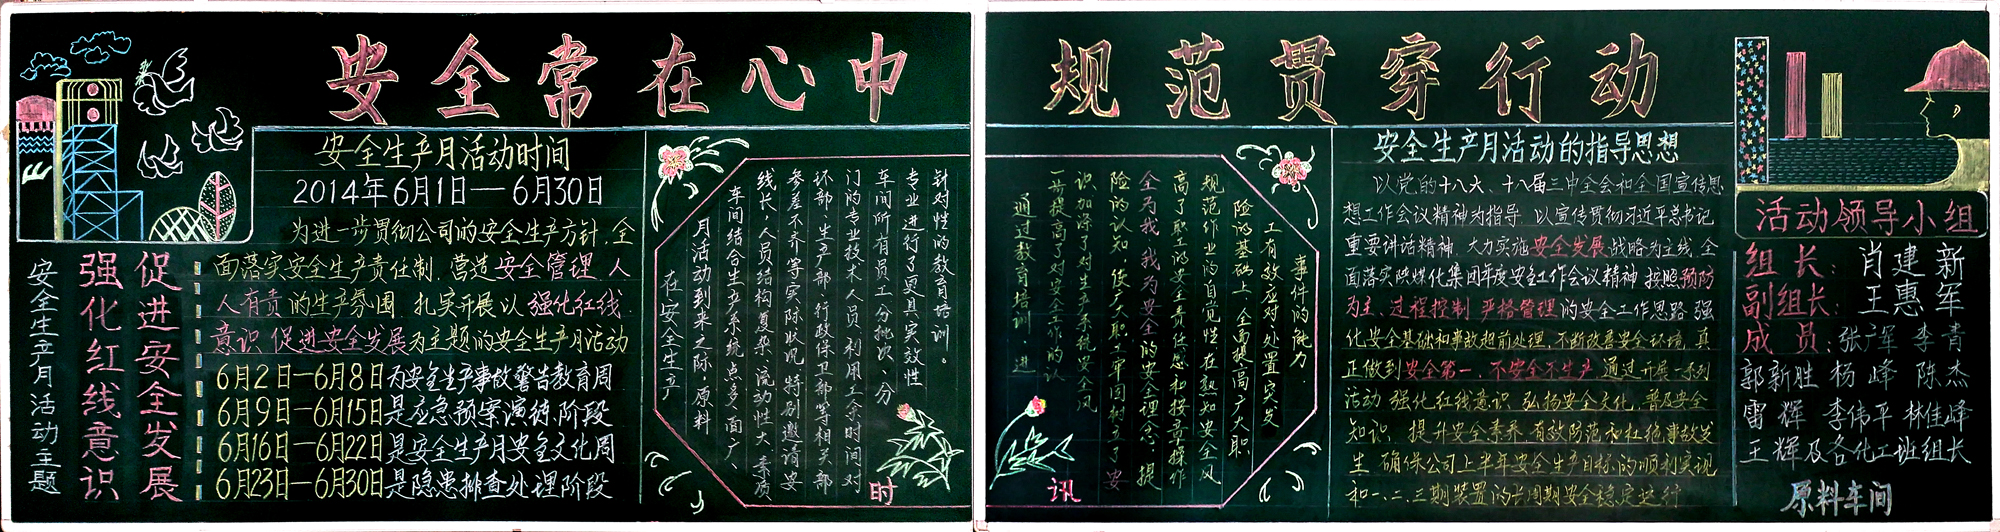 安全常在心中
规范贯穿行动
安全生产月活动主题
强化红线意识
促进安全发展
安全生产月活动时间
2014年6月1日—6月30日
为进一步贯彻公司的安全生产方针,全
面落实安全生产责任制,营造安全管理 人
人有责的生产氛围,扎实开展以 强化红线
意识 促进安全发展为主题的安全生产月活动
6月2日—6月8日为安全生产事故警告教育周
6月9日—6月15日是应急预案演练阶段
6月16日—6月22日是安全生产月安全文化周
6月23日—6月30日是隐患排查处理阶段
在安全生产
月活动到来之际,原料
车间结合生产系统点多、面广、
线长,人员结构复杂、流动性大、素质
参差不齐等实际状况,特别邀请安
环部、生产部、行政保卫部等相关部
门的专业技术人员利用工余时间对
车间所有员工分批次、分
专业进行了更具实效性
针对性的教育培训。
时
讯
通过教育培训,进
一步提高了对安全工作的认
识加深了对生产系统安全风
险的认知,使广大职工牢固树立了“安
全为我,我为安全”的安全理念,提
高了职工的安全责任感和按章操作
规范作业的自觉性,在熟知安全风
险的基础上,全面提高广大职
工有效应对、处置突发
事件的能力
安全生产月活动的指导思想
以党的十八大、十八届三中全会和全国宣传思
想工作会议精神为指导,以宣传贯彻习近平总书记
重要讲话精神,大力实施安全发展战略为主线,全
面落实陕煤化集团年度安全工作会议精神,按照预防
为主、过程控制 严格管理的安全工作思路,强
化安全基础和事故超前处理,不断改善安全环境,真
正做到安全第一、不安全不生产,通过开展一系列
活动,强化红线意识,弘扬安全文化,普及安全
知识,提升安全素养,有效防范和杜绝事故发
生,确保公司上半年安全生产目标的顺利实现
和一、二、三期装置的长周期安全稳定运行
活动领导小组
组长:肖建新
副组长:王惠军
成员:张广军 李青
郭新胜 杨峰 陈杰
雷辉 李伟平 林佳峰
王辉及各化工班组长
原料车间